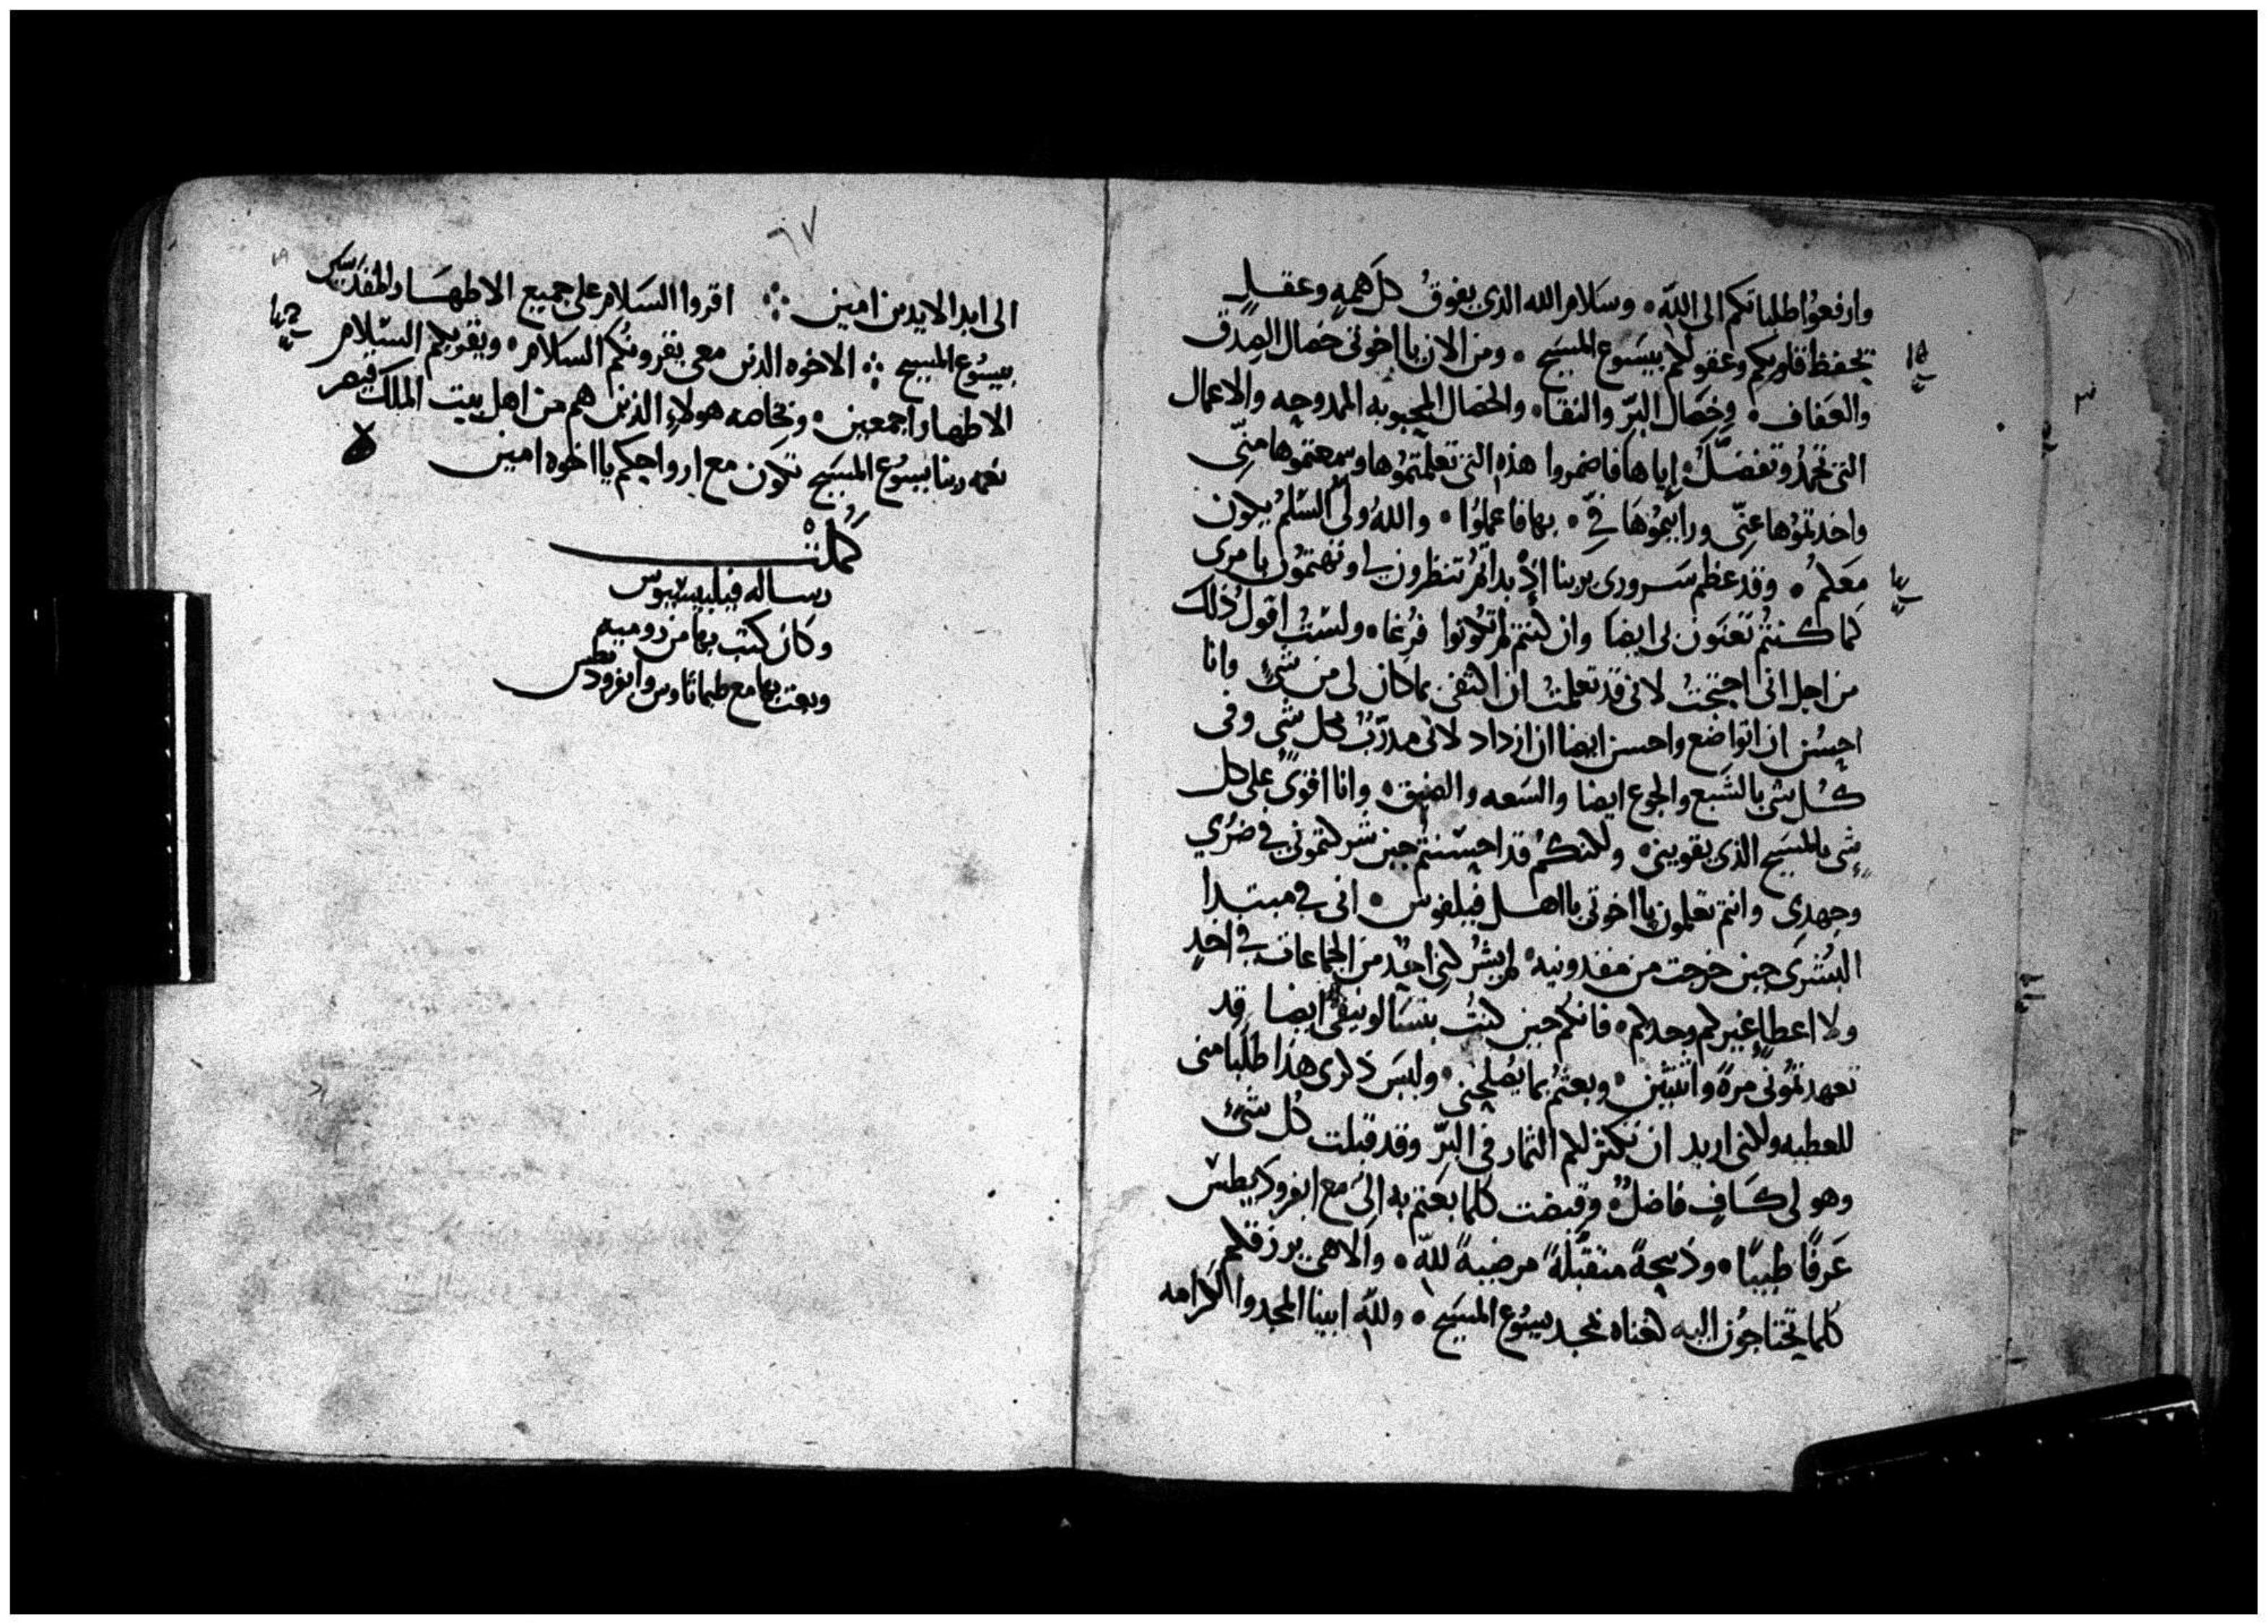 وارفعوُا طلباتكم الى اللّه ۰ وسَلام الله الذى يفوقُ كل همهٍ وعقلٍ
تحفظ قلوبكم وعقولكم بيسَوع المسَيح ۰ ومن الان يا اخوتى خصال الصِدق
والعَفاف ۰ وخِصَال البّر والنقا ۰ والخصال المحبوبه الممدوحه والاعمال
التى تحمدُ وتفضلُ اياها فاضمروا هذه التى تعلمّتمُوها وسمعتموها منِّى
واخدتموُها عنِّى ورايتموُهَا فِىَّ ۰ بهَا فاعملوُا ۰ واللهُ ولى السّلم يكون
معَكمُ ۰ وقد عَظم سَرورى بربنا اذ بداتمُ تنظرون لى وتهتمُون بامرى
كما كنتمُ تعَنَون لى ايضا وان كنتم لم تكونوا فرُغا ۰ ولسَتُ اقول ذلك
من اجل انى احتجتُ لانى قد تعلمتُ ان اكتفى بما كان لى من شىٍ وانا
احسُن ان اتواضع واحسن ايضا ان ازداد لانى مدرّبُ بكل شى وفى
كُل شى بالشَبع والجوع ايضا والسَعه والضيق ۰ وانا اقوىُ على كل
شىٍ بالمسَيح الذى يقوينى ۰ ولكنكُم قد احسَنتمُ حين شركتمونى فى ضرُي
وجهدِى وانتم تعلمون يا اخوتى يا اهل فيلفوس ۰ انى فى مبتدا
البُشرَى حين خرجت من مقدونيه ۰ لم يشُركنى احدٌ من الجماعات فى اخدٍ
ولا اعطاءٍ غيركم وحدكم ۰ فانكم حين كنتُ بتسَالونيقى ايضا قد
تعهدتموُنى مرةً واثنتين ۰ وبعثتمُ بما يصُلحنى ۰ وليسَ ذكرى هذا طلَبا منى
للعطيه ولكنى اريد ان تكثر لكم الثمار فى البّر وقد قبلت كُل شىٍ
وهو لى كَافٍ فاضلٌ ۰ وقبضت كلما بعَثتم به الىَ مع ابفروديطسَ
عَرفًا طيبًا ۰ وذبيحةً متقبّلةً مرضيةً للّه ۰ والاهى يرزقكم
كلما تحتاجوُن اليه لغناه بمجد يسَوع المسَيح ۰ وللّه ابينا المجد والكرامه
٦٧
الى ابد الابدين امين ۞ اقروا السَلام على جميع الاطهَار المقدسَين
بيسُوع المسيح ۞ الاخوه الدين معى يقرونكُم السَلام ۰ ويقريكم السَلام
الاطهار اجمعين ۰ وبخاصه هولاءِ الذين هم من اهل بيت الملك قيصر
نعمه ربنا يسُوع المسَيح تكون مع ارواحكم يا اخوه امين
كَمُلتْ
رساله فيليبسيوس
وكان كتب بها من روميه
وبعت بها مع طيماثاوس وابفرودطس